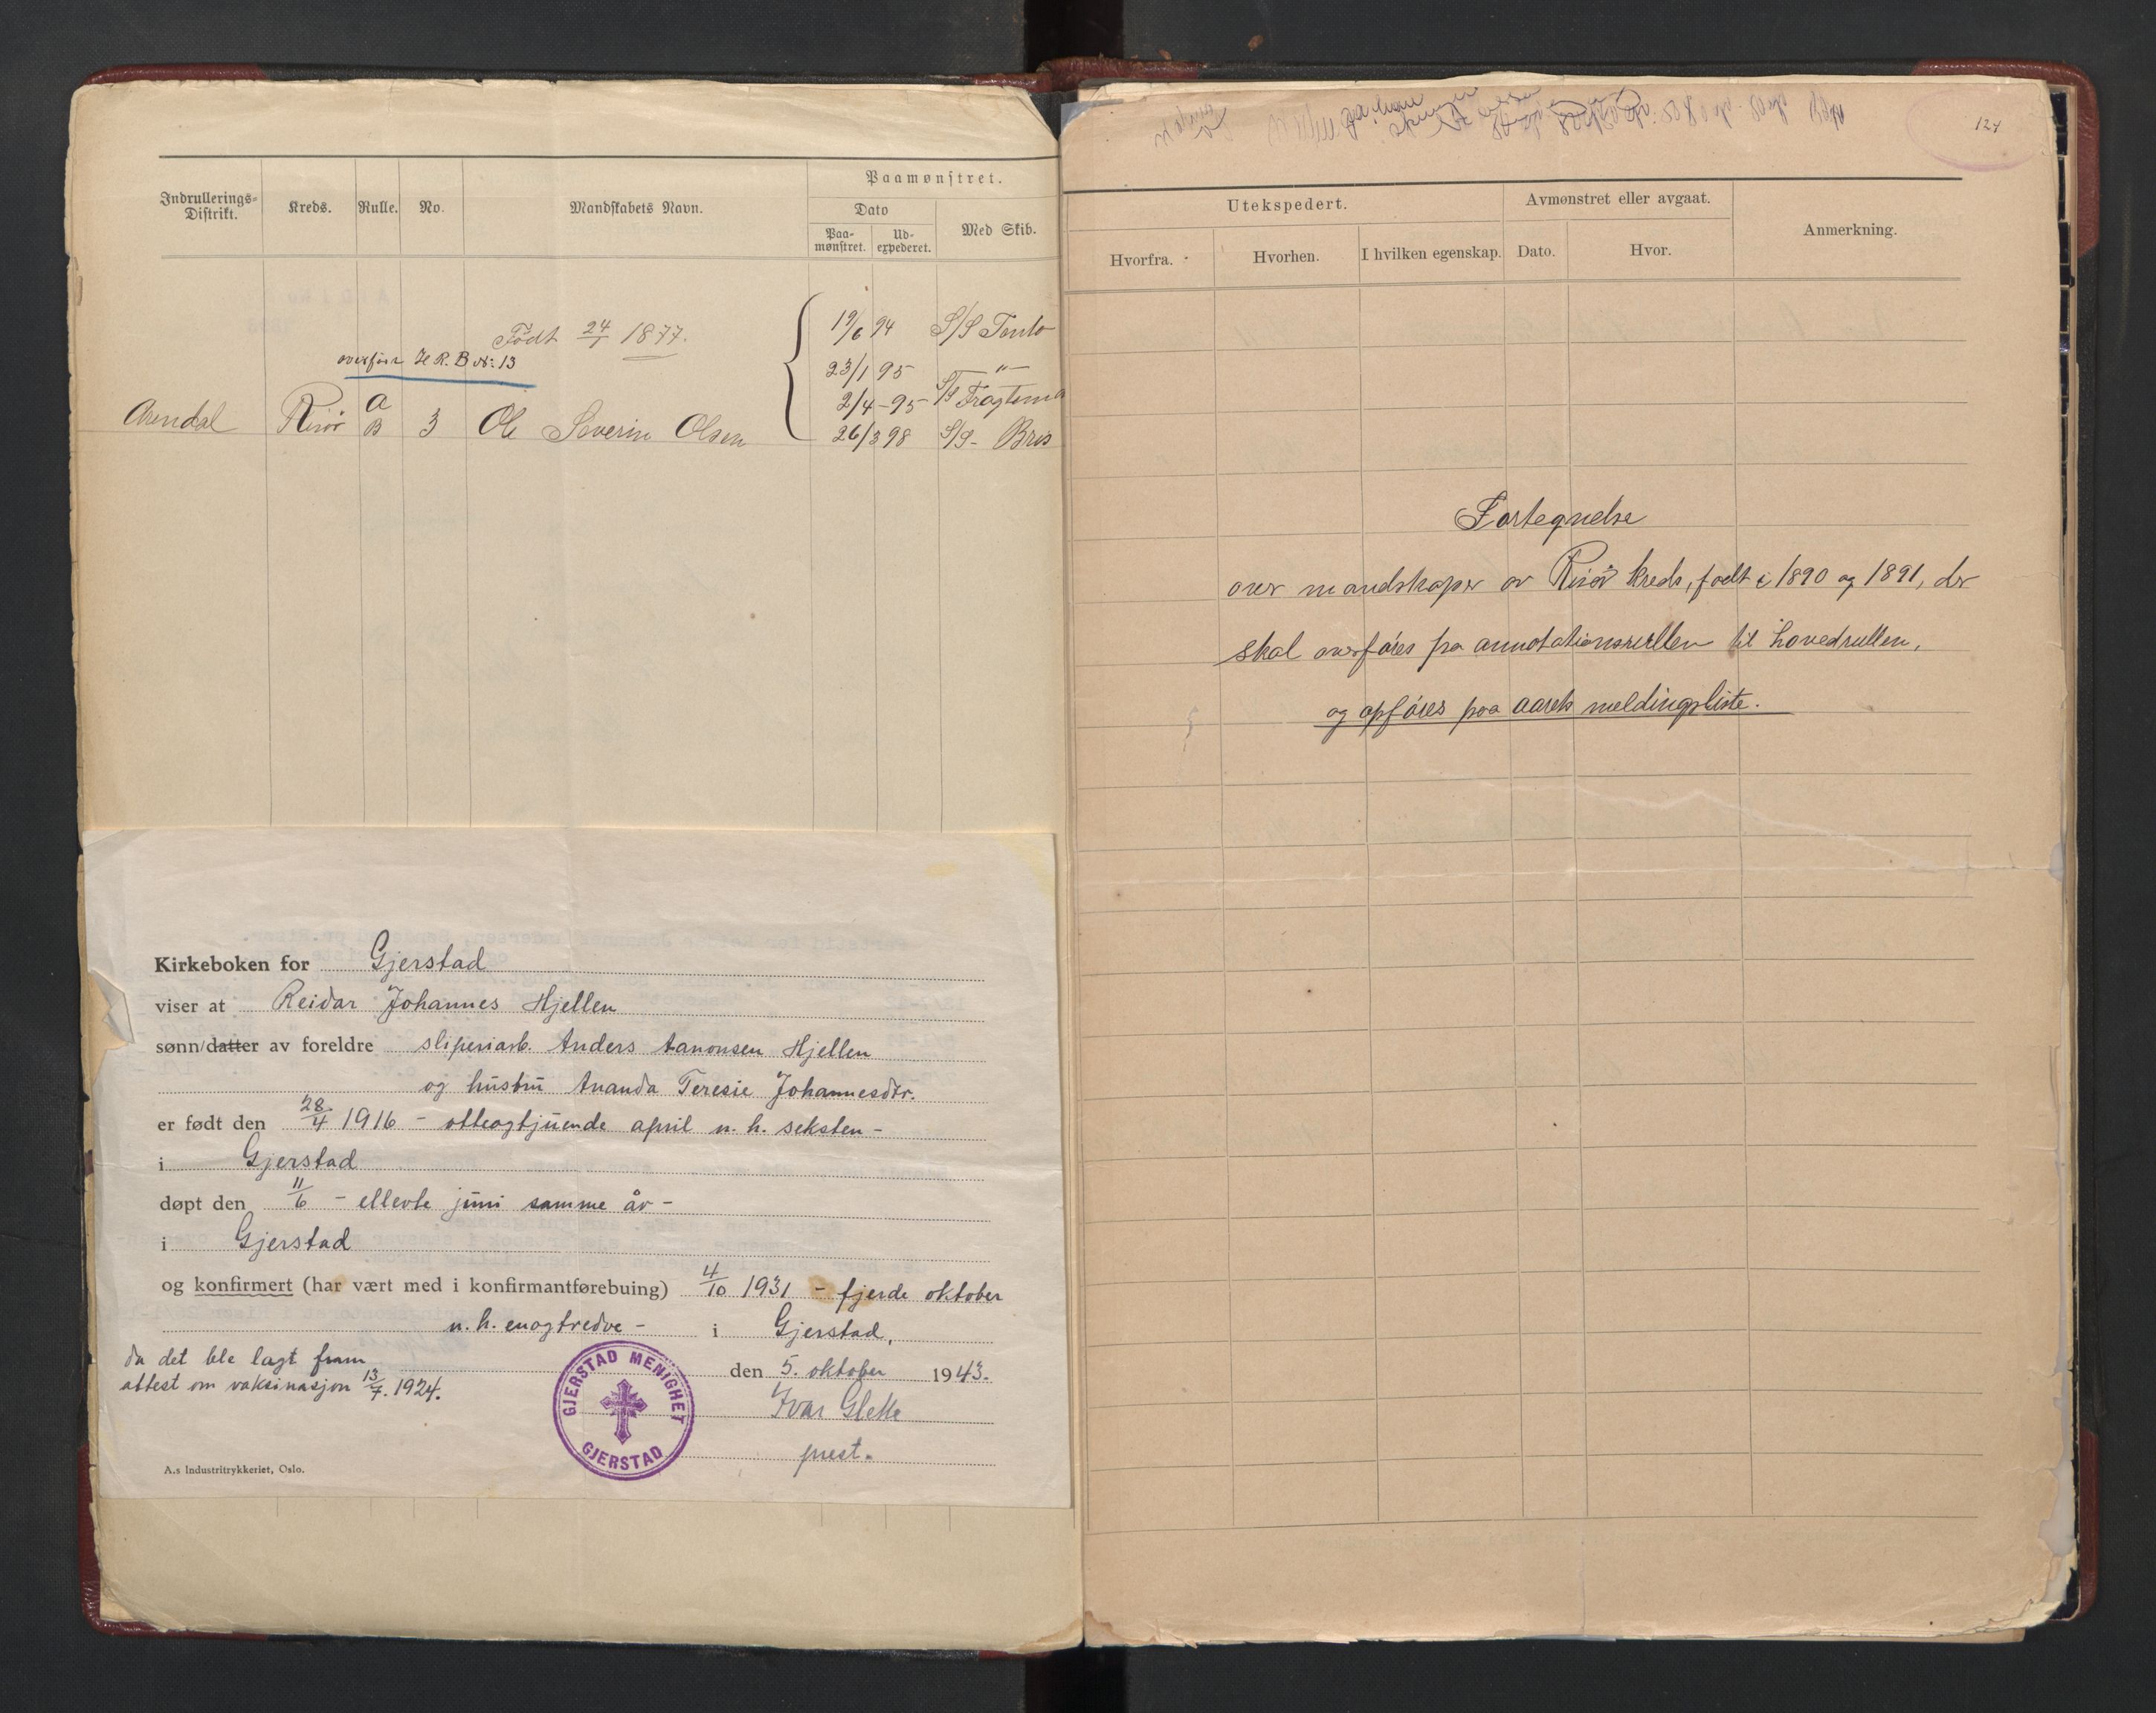 Paamønstret.
Indrullerings-
Distrikt.
Kreds.
Rulle.
No.
Mandskabets Navn.
Dato
Med Skib.
Paa-
mønstret.
Ud-
expederet.
Født 24/1 1877.
overført H.R. B No: 13
19/6 94 S/S
23/1 95 – " –
2/4 – 95
26/3 98 S/S – Bris
Arendal Risør A
B 3 Ole Severin Olsen
Kirkeboken for Gjerstad
viser at Reidar Johannes Hjellen
sønn/datter av foreldre sliperiarb. Anders Aanonsen Hjellen
og hustru Ananda Teresie Johannesdtr.
er født den 28/4 1916 – otteogtjuende april n. h. seksten –
i Gjerstad
døpt den 11/6 – ellevte juni samme år –
i Gjerstad
og konfirmert (har vært med i konfirmantførebuing) 4/10 1931 – fjerde oktober
n. h. enogtredve – i Gjerstad,
da det ble lagt fram
attest om vaksinasjon 13/7. 1924.
den 5. oktober 1943.
Ivar Glette
prest.
GJERSTAD MENIGHET
GJERSTAD
A.s Industritrykkeriet, Oslo.
124
Utekspedert.
Avmønstret eller avgaat.
Anmerkning.
Hvorfra.
Hvorhen.
I hvilken egenskap.
Dato.
Hvor.
Fortegnelse
over mandskaper av Risør kreds, født i 1890 og 1891, der
skal overføres fra annotationsrullen til hovedrullen,
og opføres paa aarets meldingsliste.